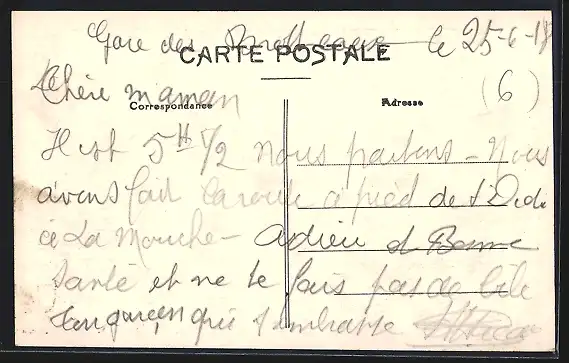 Gare des Brotteaux le 25-6-18
CARTE POSTALE
Chère maman (6)
Correspondance Adresse
Il est 5H 1/2 nous partons - Nous
avons fait la route à pied de St Didi
à La Mouche - adieu et Bonne
Santé et ne te fais pas de bile
ton garçon qui t'embrasse